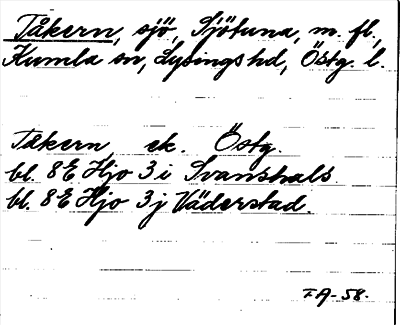 Tåkern, sjö, Sjötuna, m. fl.,
Kumla sn, Lysings hd, Östg. l.
Tåkern ek. Östg.
bl. 8E Hjo 3 i Svanshals
bl. 8E Hjo 3 j Väderstad.
FA-58.